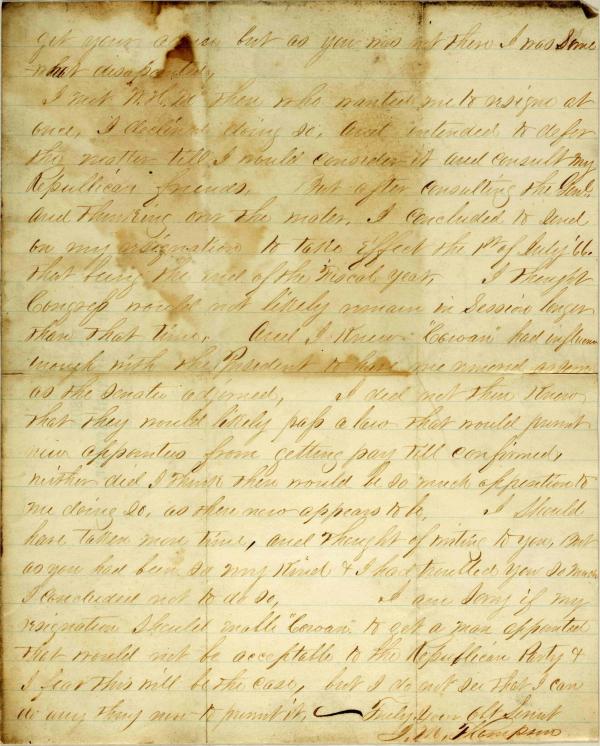 get your advice but as you was not there I was Some
what disapointed,
I met there who wanted me to resign at
once, I declined doing so, and intended to defer
the matter till I would consider it and consult my
Republican friends. But after consulting the Genl.
and thinking over the mater, I concluded to send
on my resignation to take Effect the 1st of July '66.
that being the end of the Fiscal year, I thought
Congress would not likely remain in Session longer
than that time. And I Knew "Cowan" had influence
enough with the President to have me removed as soon
as the Senate adjorned, I did not then Know
that they would likely pass a law that would prevent
new appointees from getting pay till confirmed,
neither did I think there would be so much opposition to
me doing so, as there now appears to be, I should
have taken more time, and thought of writing to you, but
as you had been so very Kind & I had troubled you so much
I concluded not to do so, I am sorry if my
resignation should enable "Cowan" to get a man appointed
that would not be acceptable to the Republican Party &
I fear this will be the case, but I do not see that I can
do any thing now to prevent it. Truly your Obt Servnt
Thompson